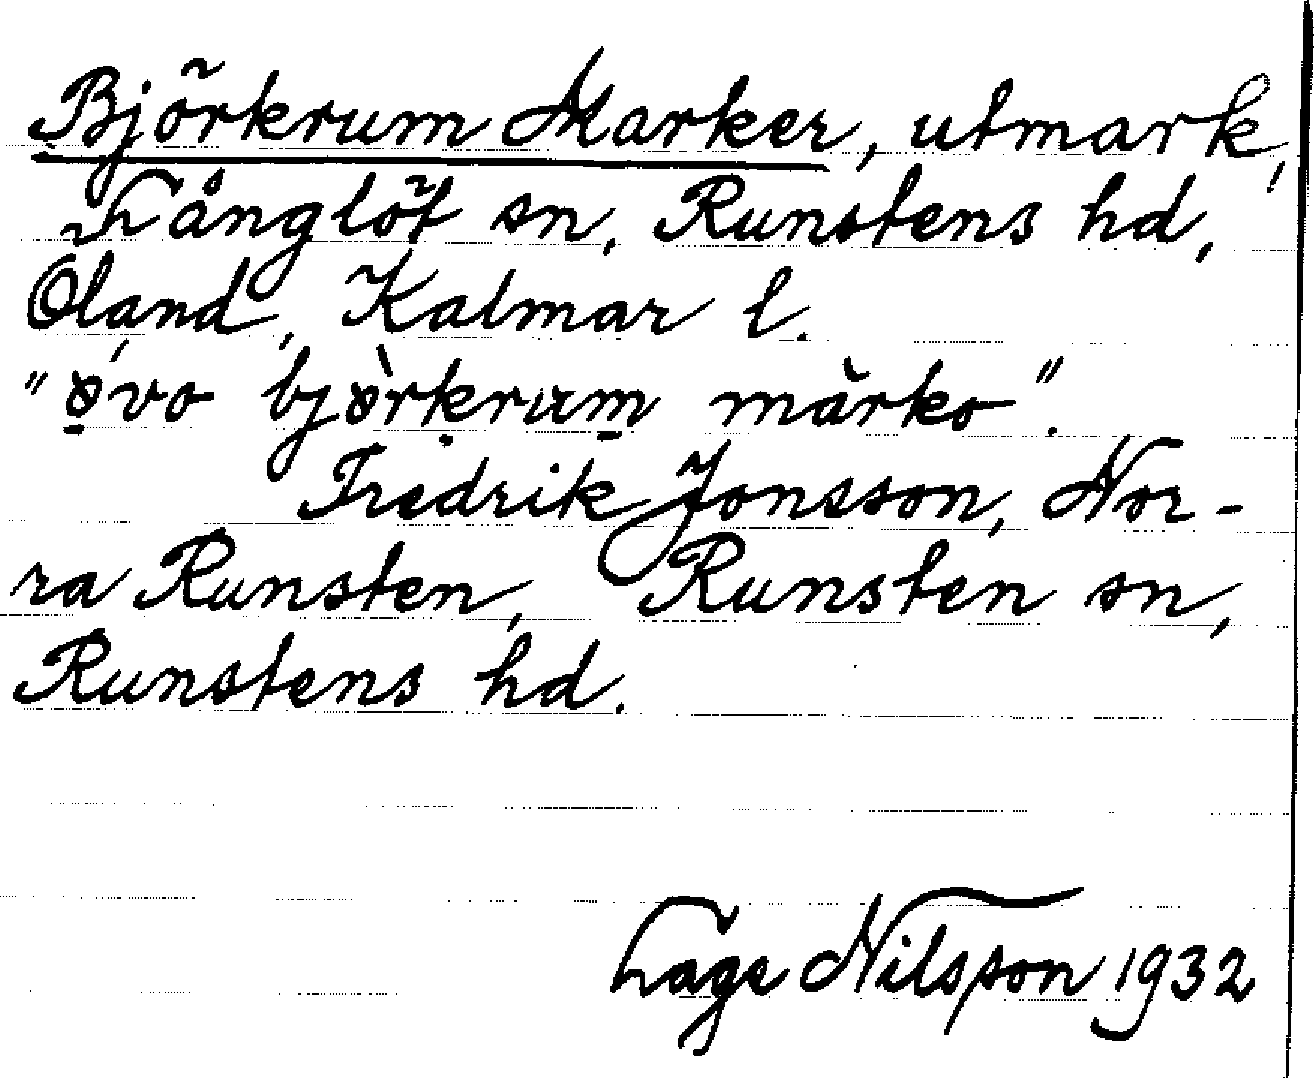 Björkrum Marker, utmark,
Långlöt sn, Runstens hd,
Öland, Kalmar l.
"øvo bjørkrum marko".
Fredrik Jonsson, Nor-
ra Runsten, Runsten sn,
Runstens hd.
Lage Nilsson 1932